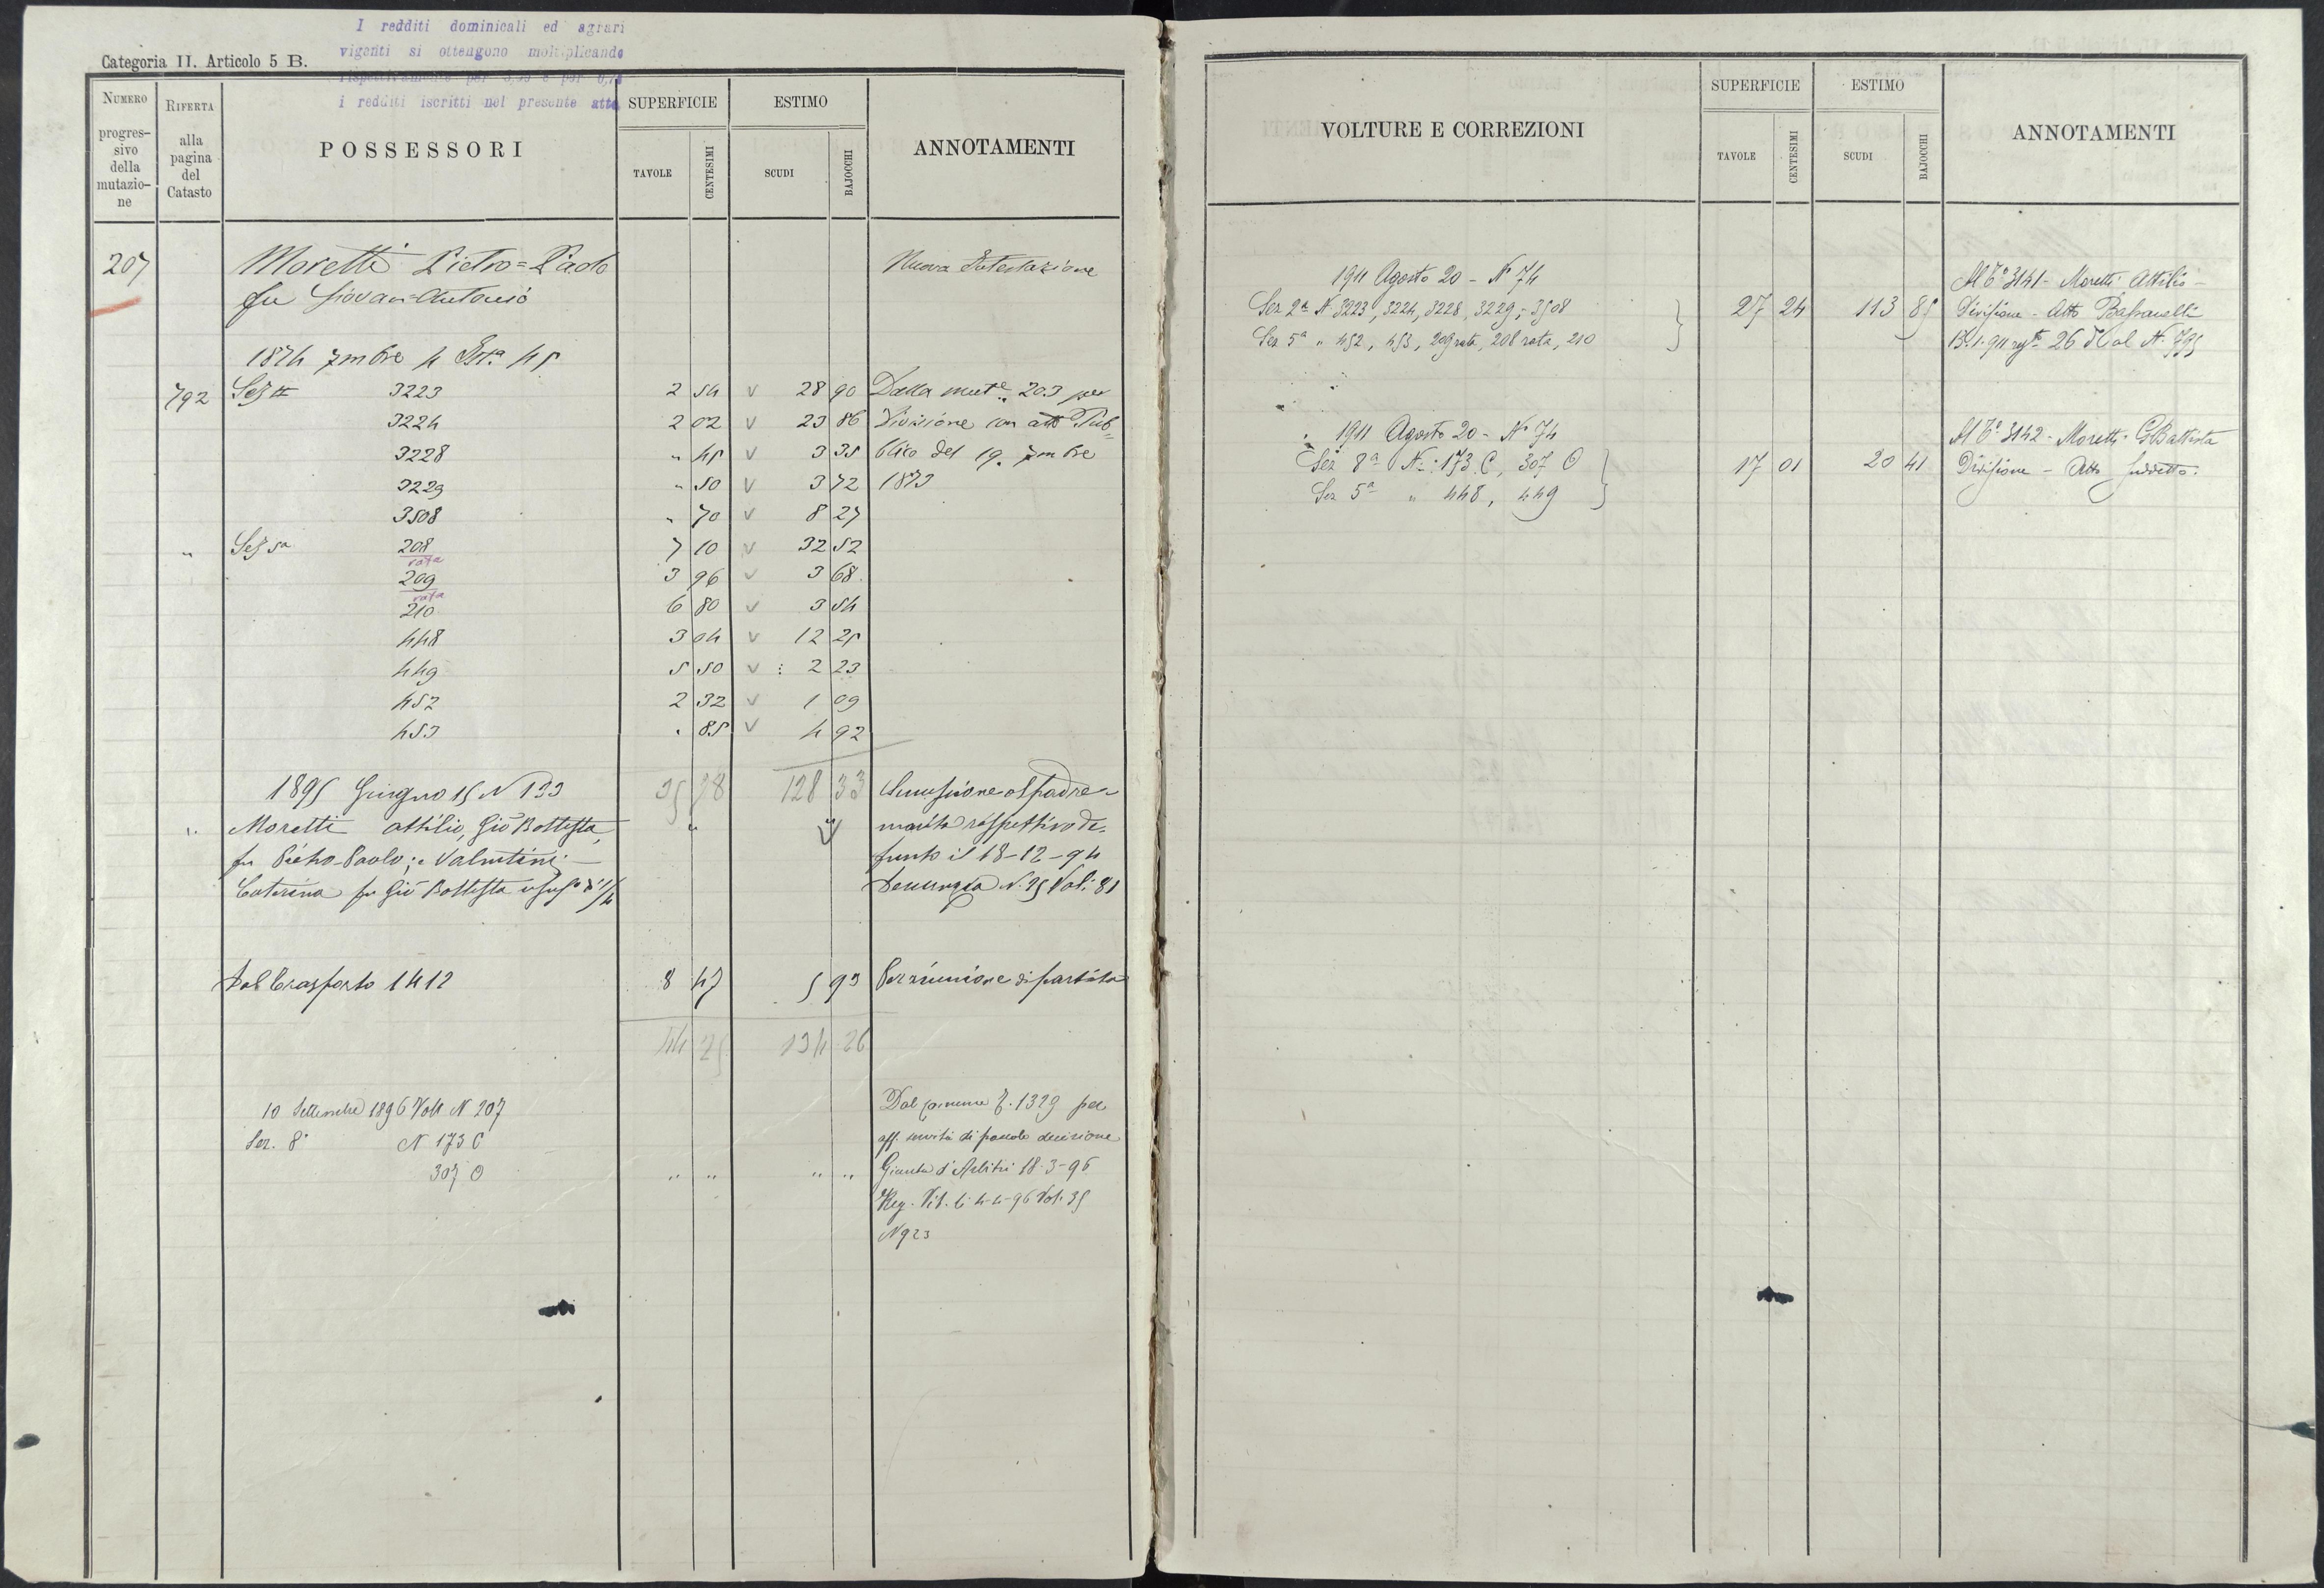 I redditi dominicali ed agrari
vigenti si ottengono moltiplicando
rispettivamente per
i redditi iscritti nel presente atto
Categoria II. Articolo 5 B.
NUMERO progressivo della mutazione
RIFERTA alla pagina del Catasto
POSSESSORI
SUPERFICIE
TAVOLE
CENTESIMI
ESTIMO
SCUDI
BAJOCCHI
ANNOTAMENTI
207 Moretti Pietro=Paolo Nuova Intestazione
fu Giovan=Antonio
1874 7mbre 4 Ist.a 45
792 Sez II 3223 2 54 v 28 90 Dalla mut.e 203 per
3224 2 02 v 23 86 Divisione con atto Pub=
3228 " 45 v 3 35 blico del 19. 7mbre
3229 " 50 v 3 72 1873
3508 " 70 v 8 27
" Sez 5a 208 rata 7 10 v 32 52
209 rata 3 96 v 3 68
210 6 80 v 3 54
448 3 04 v 12 25
449 5 50 v 2 23
452 2 32 v 1 09
453 " 85 v 4 92
35 78 128 33
1895 Giugno 15 N 133 Successione al padre e
" Moretti Attilio, Gio Battista, " " marito rispettivo de-
fu Pietro-Paolo; e Valentini funto il 18-12-94
Caterina fu Gio Battista usuf.a di 1/4 Denunzia N. 25 Vol. 81
Dal Trasporto 1412 8 47 5 93 Per riunione di partita
44 25 134 26
10 Settembre 1896 Volt N 207 Dal comune T. 1329 per
Sez. 8a N 173 C aff. servitù di pascolo decisione
307 O " " " " Giunta d'Arbitri 18-3-96
Reg. Vit. li 4-4-96 Vol. 35
N 923
VOLTURE E CORREZIONI
SUPERFICIE
TAVOLE
CENTESIMI
ESTIMO
SCUDI
BAJOCCHI
ANNOTAMENTI
1911 Agosto 20 - N° 74 Al T° 3141 - Moretti Attilio -
Sez 2a N. 3223, 3224, 3228, 3229, 3508 27 24 113 85 Divisione - Atto
Sez 5a " 452, 453, 209 rata, 208 rata, 210 26 al N. 795
1911 Agosto 20 - N° 74 Al T° 3142 - Moretti G Battista
Sez 8a N.: 173 C, 307 O 17 01 20 41 Divisione - Atto suddetto.
Sez 5a " 448, 449